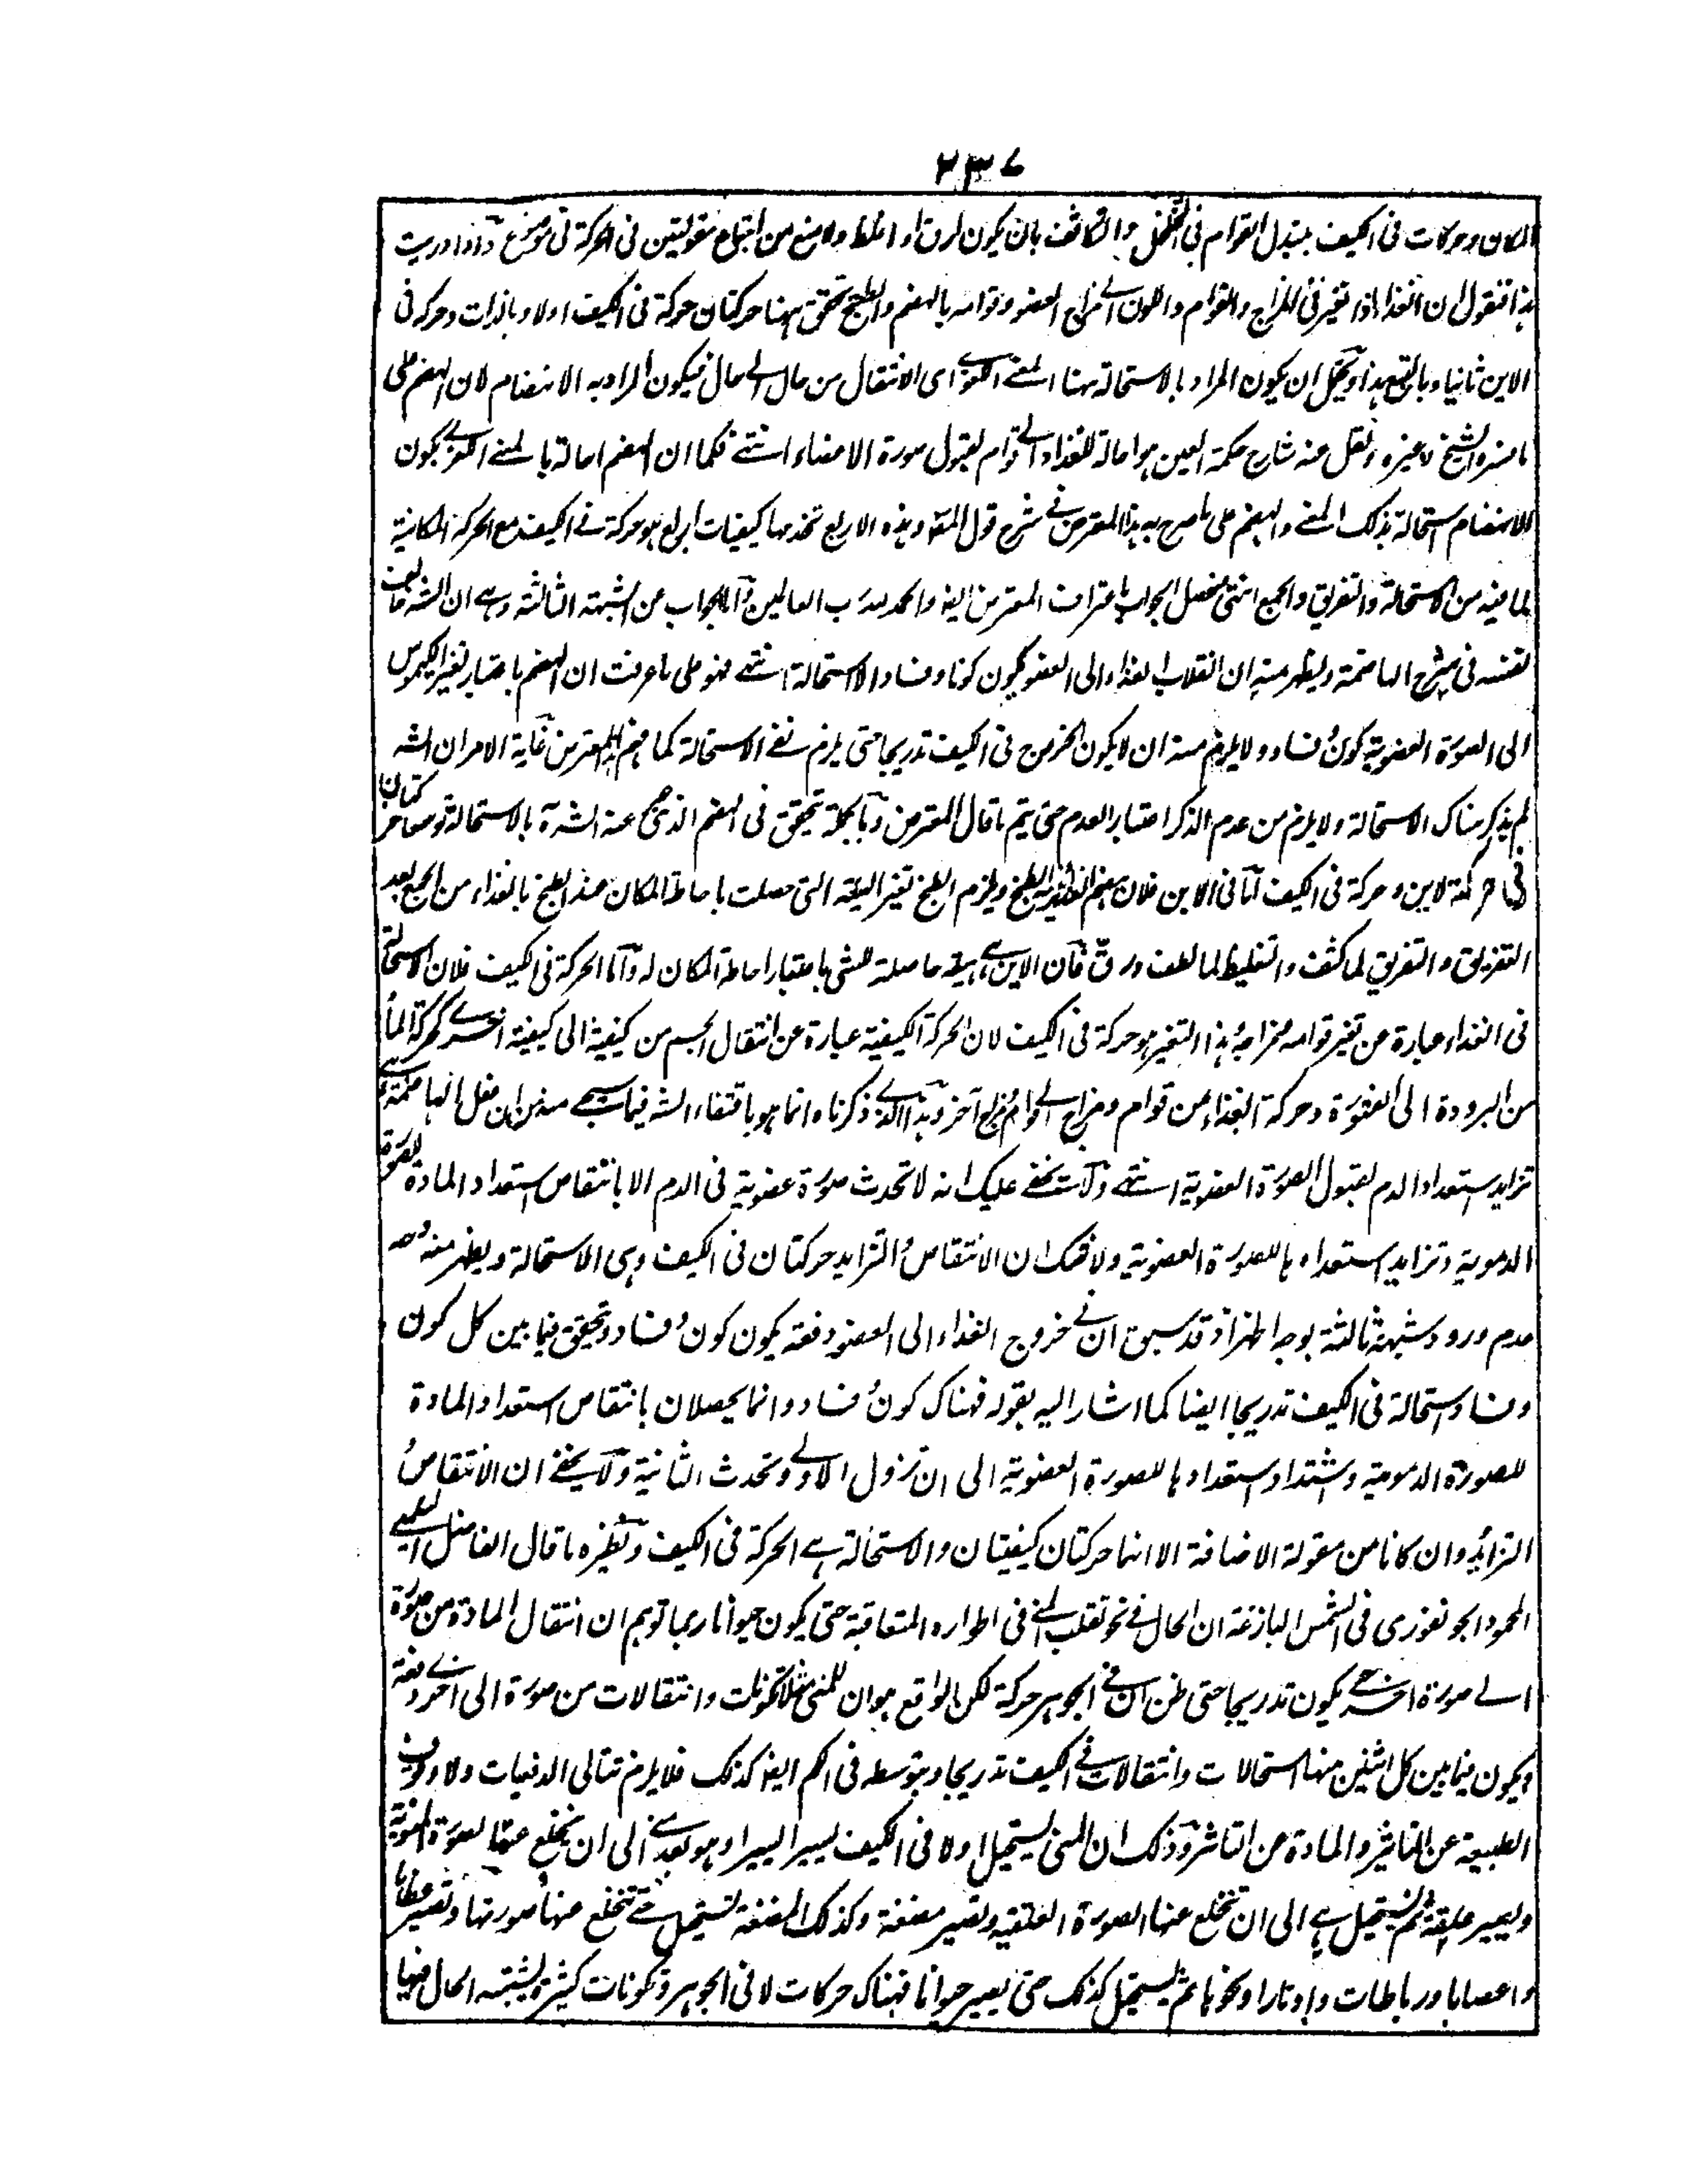 ٢٣٧
المكان وحركات فى الكيف بتبدل القوام فى التخلخل والتكاثف بان يكون ارق او اغلظ ولا منع من اجتماع مقولتين فى الحركة فى موضوع واذا دريت
هذا فنقول ان الغذاء اذا تغير فى المزاج والقوام واللون الى مزاج العضو وقوامه بالهضم والطبخ تحقق ههنا حركتان حركة فى الكيف اولا وبالذات وحركة فى
الاين ثانيا وبالتبع هذا ويحتمل ان يكون المراد بالاستحالة ههنا المعنى اللغوى اى الانتقال من حال الى حال فيكون المراد به الانهضام لان الهضم على
ما فسره الشيخ لا غيره ونقل عنه شارح حكمة العين هو احالة للغذاء الى قوام لقبول صورة الاعضاء انتهى فكما ان الهضم احالة بالمعنى اللغوى يكون
الانهضام استحالة بذلك المعنى والهضم على ما صرح به هذا المعترض فى شرح قول المصنف وهذه الاربع تخدمها كيفيات اربع هو حركة فى الكيف مع الحركة المكانية
لما فيه من الاستحالة والتفريق والجمع انتهى فحصل الجواب باعتراف المعترض ايضا والحمد لله رب العالمين واما الجواب عن الشبهة الثالثة وهى ان الشه خالف
نفسه فى شرح الهاضمة ويظهر منه ان انقلاب الغذاء الى العضو يكون كونا وفسادا لا استحالة انتهى فهو على ما عرفت ان الهضم باعتبار تغير الكيموس
الى الصورة العضوية كون وفساد ولا يلزم منه ان لا يكون الخروج فى الكيف تدريجا حتى يلزم نفى الاستحالة كما فهم هذا المعترض غاية الامر ان الشه
لم يذكر هناك الاستحالة ولا يلزم من عدم الذكر اعتبار العدم حتى يتم ما قال المعترض وبالجملة تحقق فى الهضم الذى عبر عنه الشه بالاستحالة توسعا حركتان
حركة فى الاين وحركة فى الكيف اما فى الاين فلان هضم الغذاء يلزمه الطبخ ويلزم الطبخ تغير الهيئة التى حصلت باحاطة المكان عند الطبخ بالغذاء من الجمع بعد
التفريق والتفريق لما كثف والتغليظ لما لطف ورق فان الاين هى هيئة حاصلة للشئ باعتبار احاطة المكان له واما الحركة فى الكيف فلان الاستحالة
فى الغذاء عبارة عن تغير قوامه ومزاجه وهذا التغير هو حركة فى الكيف لان الحركة الكيفية عبارة عن انتقال الجسم من كيفية الى كيفية اخرى كحركة الماء
من البرودة الى الفتورة وحركة الغذاء من قوام ومزاج الى قوام ومزاج آخر وهذا الذى ذكرنا وانما هو باقتفاء الشه فيما سيجئ منه من ان فعل الهاضمة هى
تزايد استعداد الدم لقبول الصورة العضوية انتهى ولا يخفى عليك انه لا تحدث صورة عضوية فى الدم الا بانتقاص استعداد المادة للصورة
الدموية وتزايد استعدادها للصورة العضوية ولا شك ان الانتقاص والتزايد حركتان فى الكيف وهى الاستحالة ويظهر منه وجه
عدم ورود شبهة ثالثة بوجه اظهر اذ قد سبق ان فى خروج الغذاء الى العضو دفعة يكون كون وفساد وتحقق فيما بين كل كون
وفساد استحالة فى الكيف تدريجا ايضا كما اشار اليه بقوله فهناك كون وفساد وانما يحصلان بانتقاص استعداد المادة
للصورة الدموية واشتداد استعدادها للصورة العضوية الى ان تزول الاولى وتحدث الثانية ولا يخفى ان الانتقاص و
التزايد وان كانا من مقولة الاضافة الا انهما حركتان كيفيتان والاستحالة هى الحركة فى الكيف ونظيره ما قال الفاضل
المحمود الجونفورى فى الشمس البازغة ان الحال فى نحو تقلب المنى فى اطواره المتعاقبة حتى يكون حيوانا ربما توهم ان انتقال المادة من صورة
الى صورة اخرى يكون تدريجا حتى ظن ان فى الجوهر حركة لكن الواقع هو ان للمنى مثلا تكونات وانتقالات من صورة الى اخرى دفعة
ويكون فيما بين كل اثنين منها استحالات وانتقالات فى الكيف تدريجا وبتوسطه فى الكم ايضا كذلك فلا يلزم تتالى الدفعيات ولا وقوف
الطبيعة عن التاثير والمادة عن التاثر وذلك ان المنى يستحيل اولا فى الكيف يسيرا يسيرا وهو بعد منى الى ان ينخلع عنها الصورة المنوية
ويصير علقة ثم يستحيل هى الى ان تنخلع عنها الصورة العلقية وتصير مضغة وكذلك المضغة تستحيل حتى تنخلع عنها صورتها وتصير عظاما
واعصابا ورباطات واوتارا ونحوها ثم يستحيل كذلك حتى يصير حيوانا فهناك حركات لا فى الجوهر وتكونات كثيرة يشتبه الحال فيها